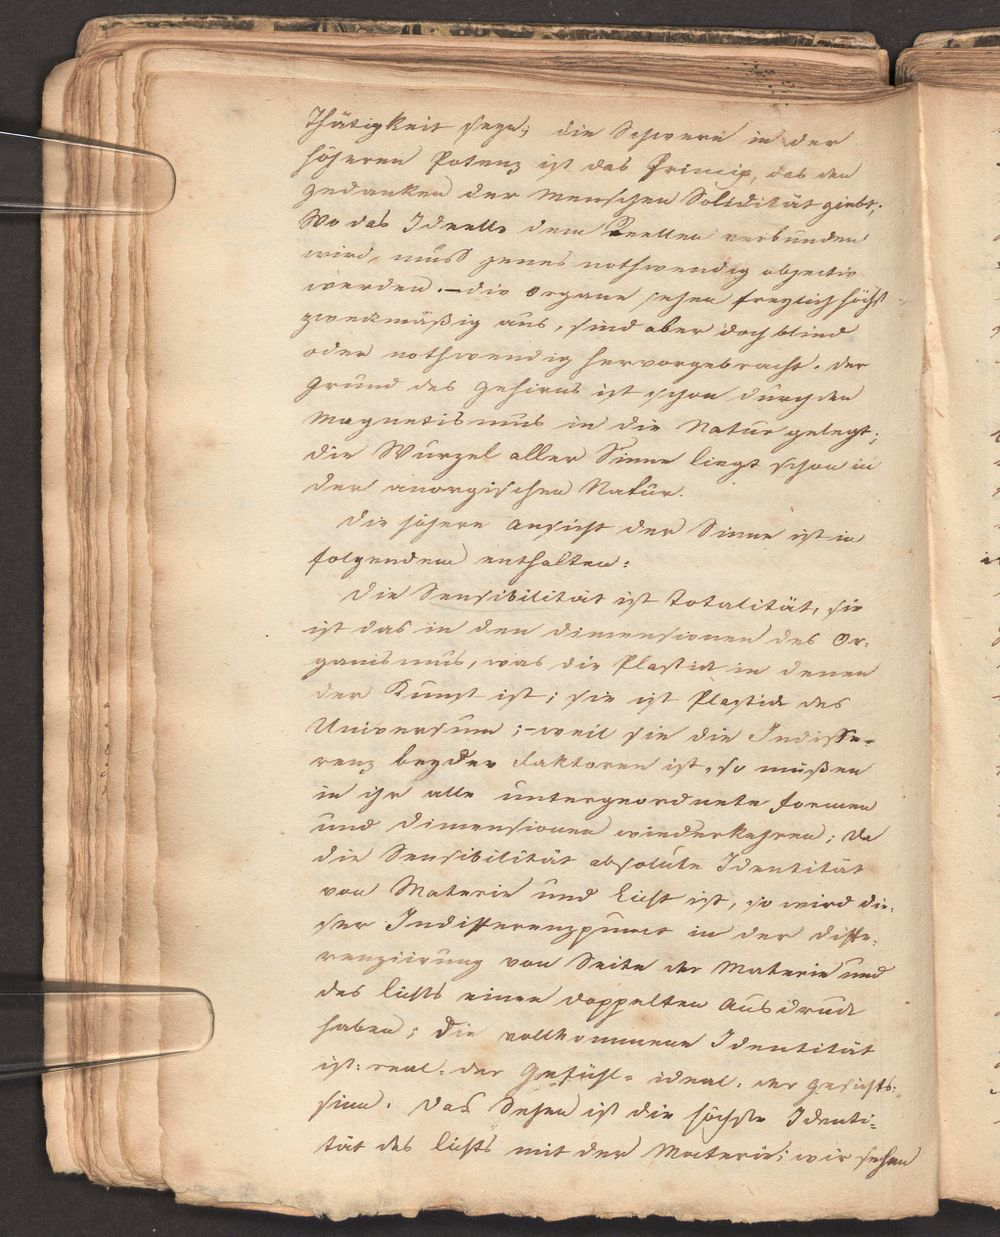 Thätigkeit seyn; die Schwere in der
höheren Potenz ist das Princip, das den
Gedanken der Menschen Solidität giebt;
Wo das Ideelle dem Reellen verbunden
wird, muß jenes nothwendig objectiv
werden. – die Organe sehen freylich höchst
zweckmäßig aus, sind aber doch blind
oder nothwendig hervorgebracht. der
Grund des Gehirns ist schon durch den
Magnetismus in die Natur gelegt;
die Wurzel aller Sinne liegt schon in
der anorgischen Natur.
die höhere Ansicht der Sinne ist in
folgendem enthalten:
die Sensibilität ist Totalität, sie
ist das in den dimensionen des Or-
ganismus, was die Plastik in denen
der Kunst ist; sie ist Plastik des
Universum; – weil sie die Indiffe-
renz beyder Faktoren ist, so müßen
in ihr alle untergeordnete Formen
und dimensionen wiederkehren; da
die Sensibilität absolute Identität
von Materie und Licht ist, so wird die-
ser Indifferenzpunct in der diffe-
renziirung von Seite der Materie und
des Lichts einen doppelten Ausdruck
haben; die vollkommene Identität
ist: real. der Gefühl- ideal. der Gesichts-
sinn. das Sehen ist die höchste Identi-
tät des Lichts mit der Materie; wir sehen